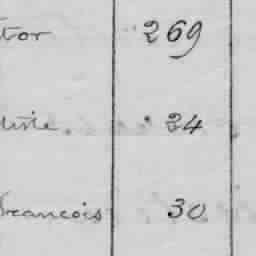 tor 269
tiste. 24
Francois 30